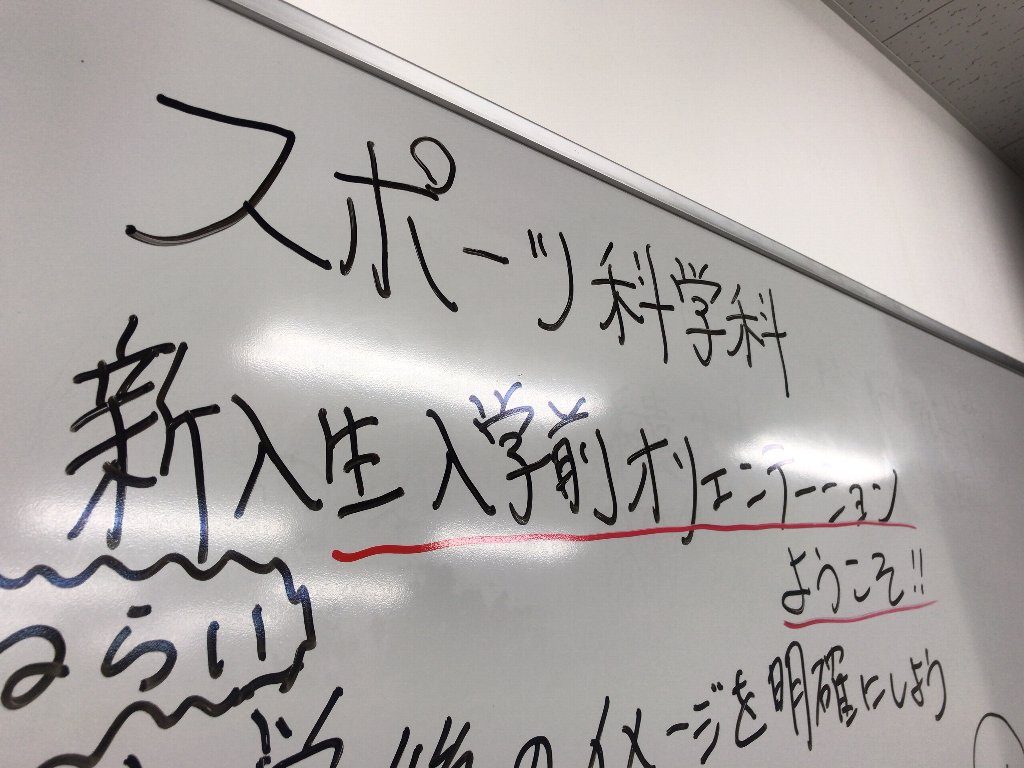 スポーツ科学科
新入生入学前オリエンテーション
ようこそ!!
ねらい
学後のイメージを明確にしよう